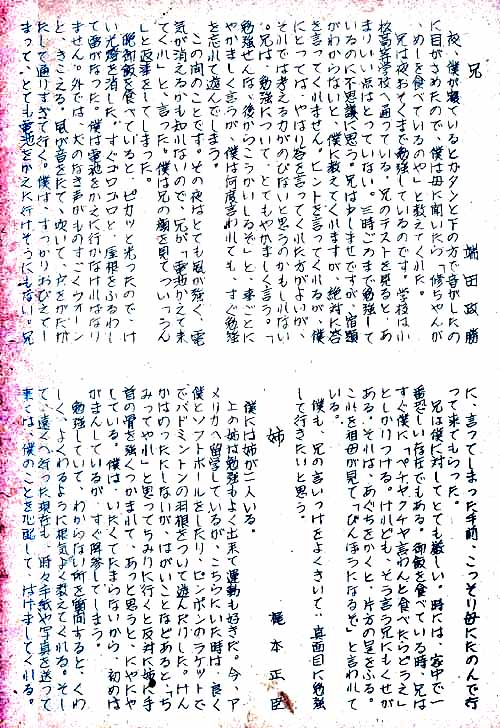 兄
端田政勝
夜、僕が寝ているとカタンと下の方で音がしたの
に目がさめたので、僕は母に聞いたら「修ちゃんが
、めしを食べているのや」と教えてくれた。
兄は夜おそくまで勉強しているのです。学校は小
松高等学校へ通っている。兄のテストを見ると、あ
まりいい点はとっていない。三時ごろまで勉強して
いるのに不思議に思う。兄は少しませですが、宿題
がわからないと、僕に教えてくれますが、絶対に答
を言ってくれません。ヒントを言ってくれるが、僕
にとっては、やはり答を言ってくれた方がよいが、
それでは考える力がのびないと思うのかもしれない
。兄は、勉強について、とてもやかましく言う。「
勉強せんな、後からこうかいしるぞ」と、来ごとに
やかましく言うが、僕は何度言われても、すぐ勉強
を忘れて遊んでしまう。
この間のことです。その夜はとても風が強く、電
気が消えるかも知れないので、兄が「電池かえて来
てくれ」と、言った。僕は兄の顔を見てつい「うん
」と返事をしてしまった。
晩御飯を食べていると、ピカッと光ったので、け
い光燈を消した。すぐゴロゴロと、屋根をふるわし
て雷がなった。僕は電池をかえに行かなければなり
ません。外では、犬のなき声がものすごくウオーン
と、きこえる。風が音をたて、吹いて、戸をがたが
たして通りすぎて行く。僕は、すっかりおびえてし
まって、とても電池をかえに行けそうにもない。兄
に、言ってしまった手前、こっそり母にたのんで行
って来てもらった。
兄は僕に対してとても厳しい。時には、家中で一
番恐しい存在でもある。御飯を食べている時、兄は
すぐ僕に、「ペチャクチャ言わんと食べたらどうえ」
としかりつける。けれども、そう言う兄にもくせが
ある。それは、あぐちをかくと、片方の足をふる。
これを祖母が見て「びんぼうになるぞ」と言われて
いる。
僕も、兄の言いつけをよくきいて、真面目に勉強
して行きたいと思う。
姉
梶本正臣
僕には姉が二人いる。
上の姉は勉強もよく出来て運動も好きだ。今、ア
メリカへ留学しているが、こちらにいた時は、良く
僕とソフトボールをしたり、ピンポンのラケットで
でバドミントンの羽根をついて遊んだりした。けん
かはめったにしないが、はがいいことなどあると「ち
みってやれ」と思ってちみりに行くと反対に姉に手
首の骨を強くつかまれて、あっと思うと、にやにや
している。僕は、いたくてたまらないから、初めは
がまんしているが、すぐ降参してしまう。
勉強していて、わからない所を質問すると、くわ
しく、よくわかるように根気よく教えてくれる。そし
て、遠くへ行った現在も、時々手紙や写真を送って
来ては、僕のことを心配して、はげましてくれる。